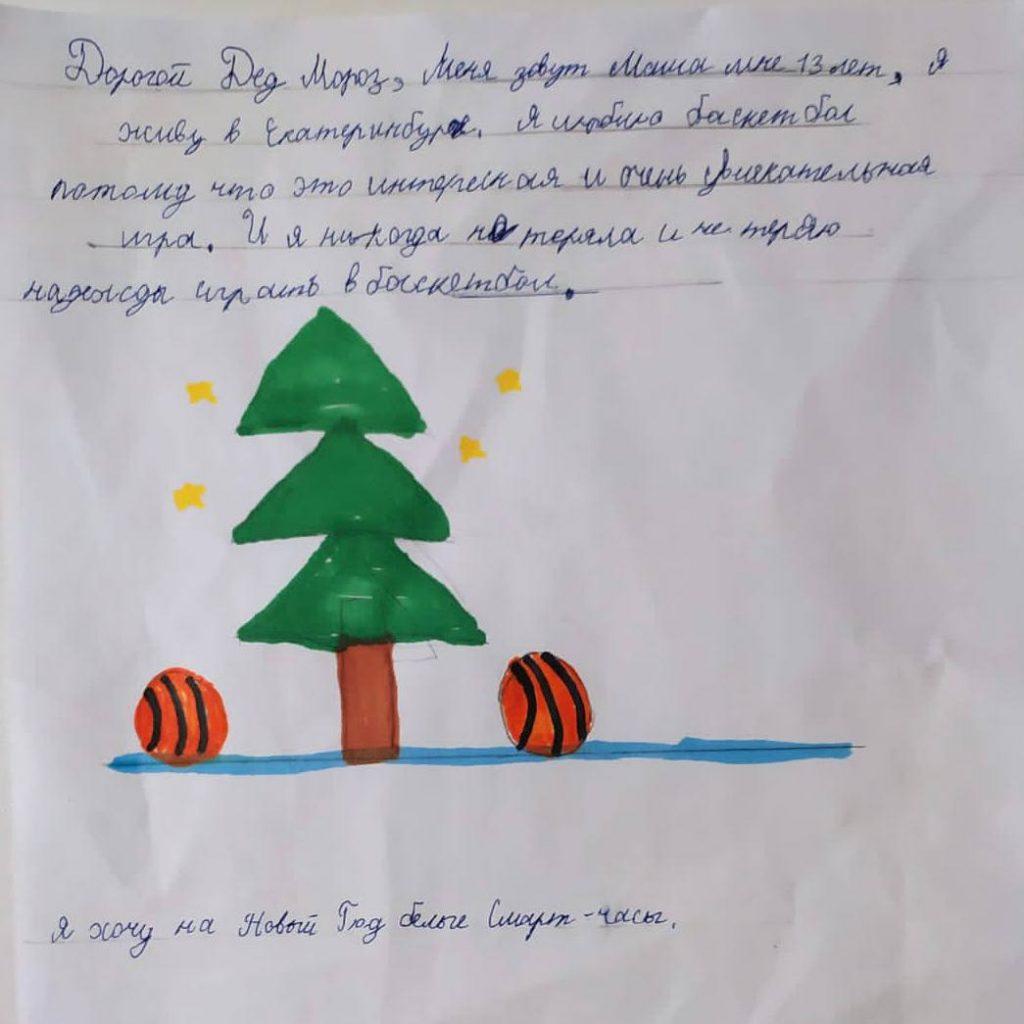 Дорогой Дед Мороз, Меня зовут Маша мне 13 лет, я
живу в Екатеринбурге. Я люблю баскетбол
потому что это интересная и очень увлекательная
игра. И я никогда не теряла и не теряю
надежды играть в баскетбол.
Я хочу на Новый Год белые Смарт-часы.